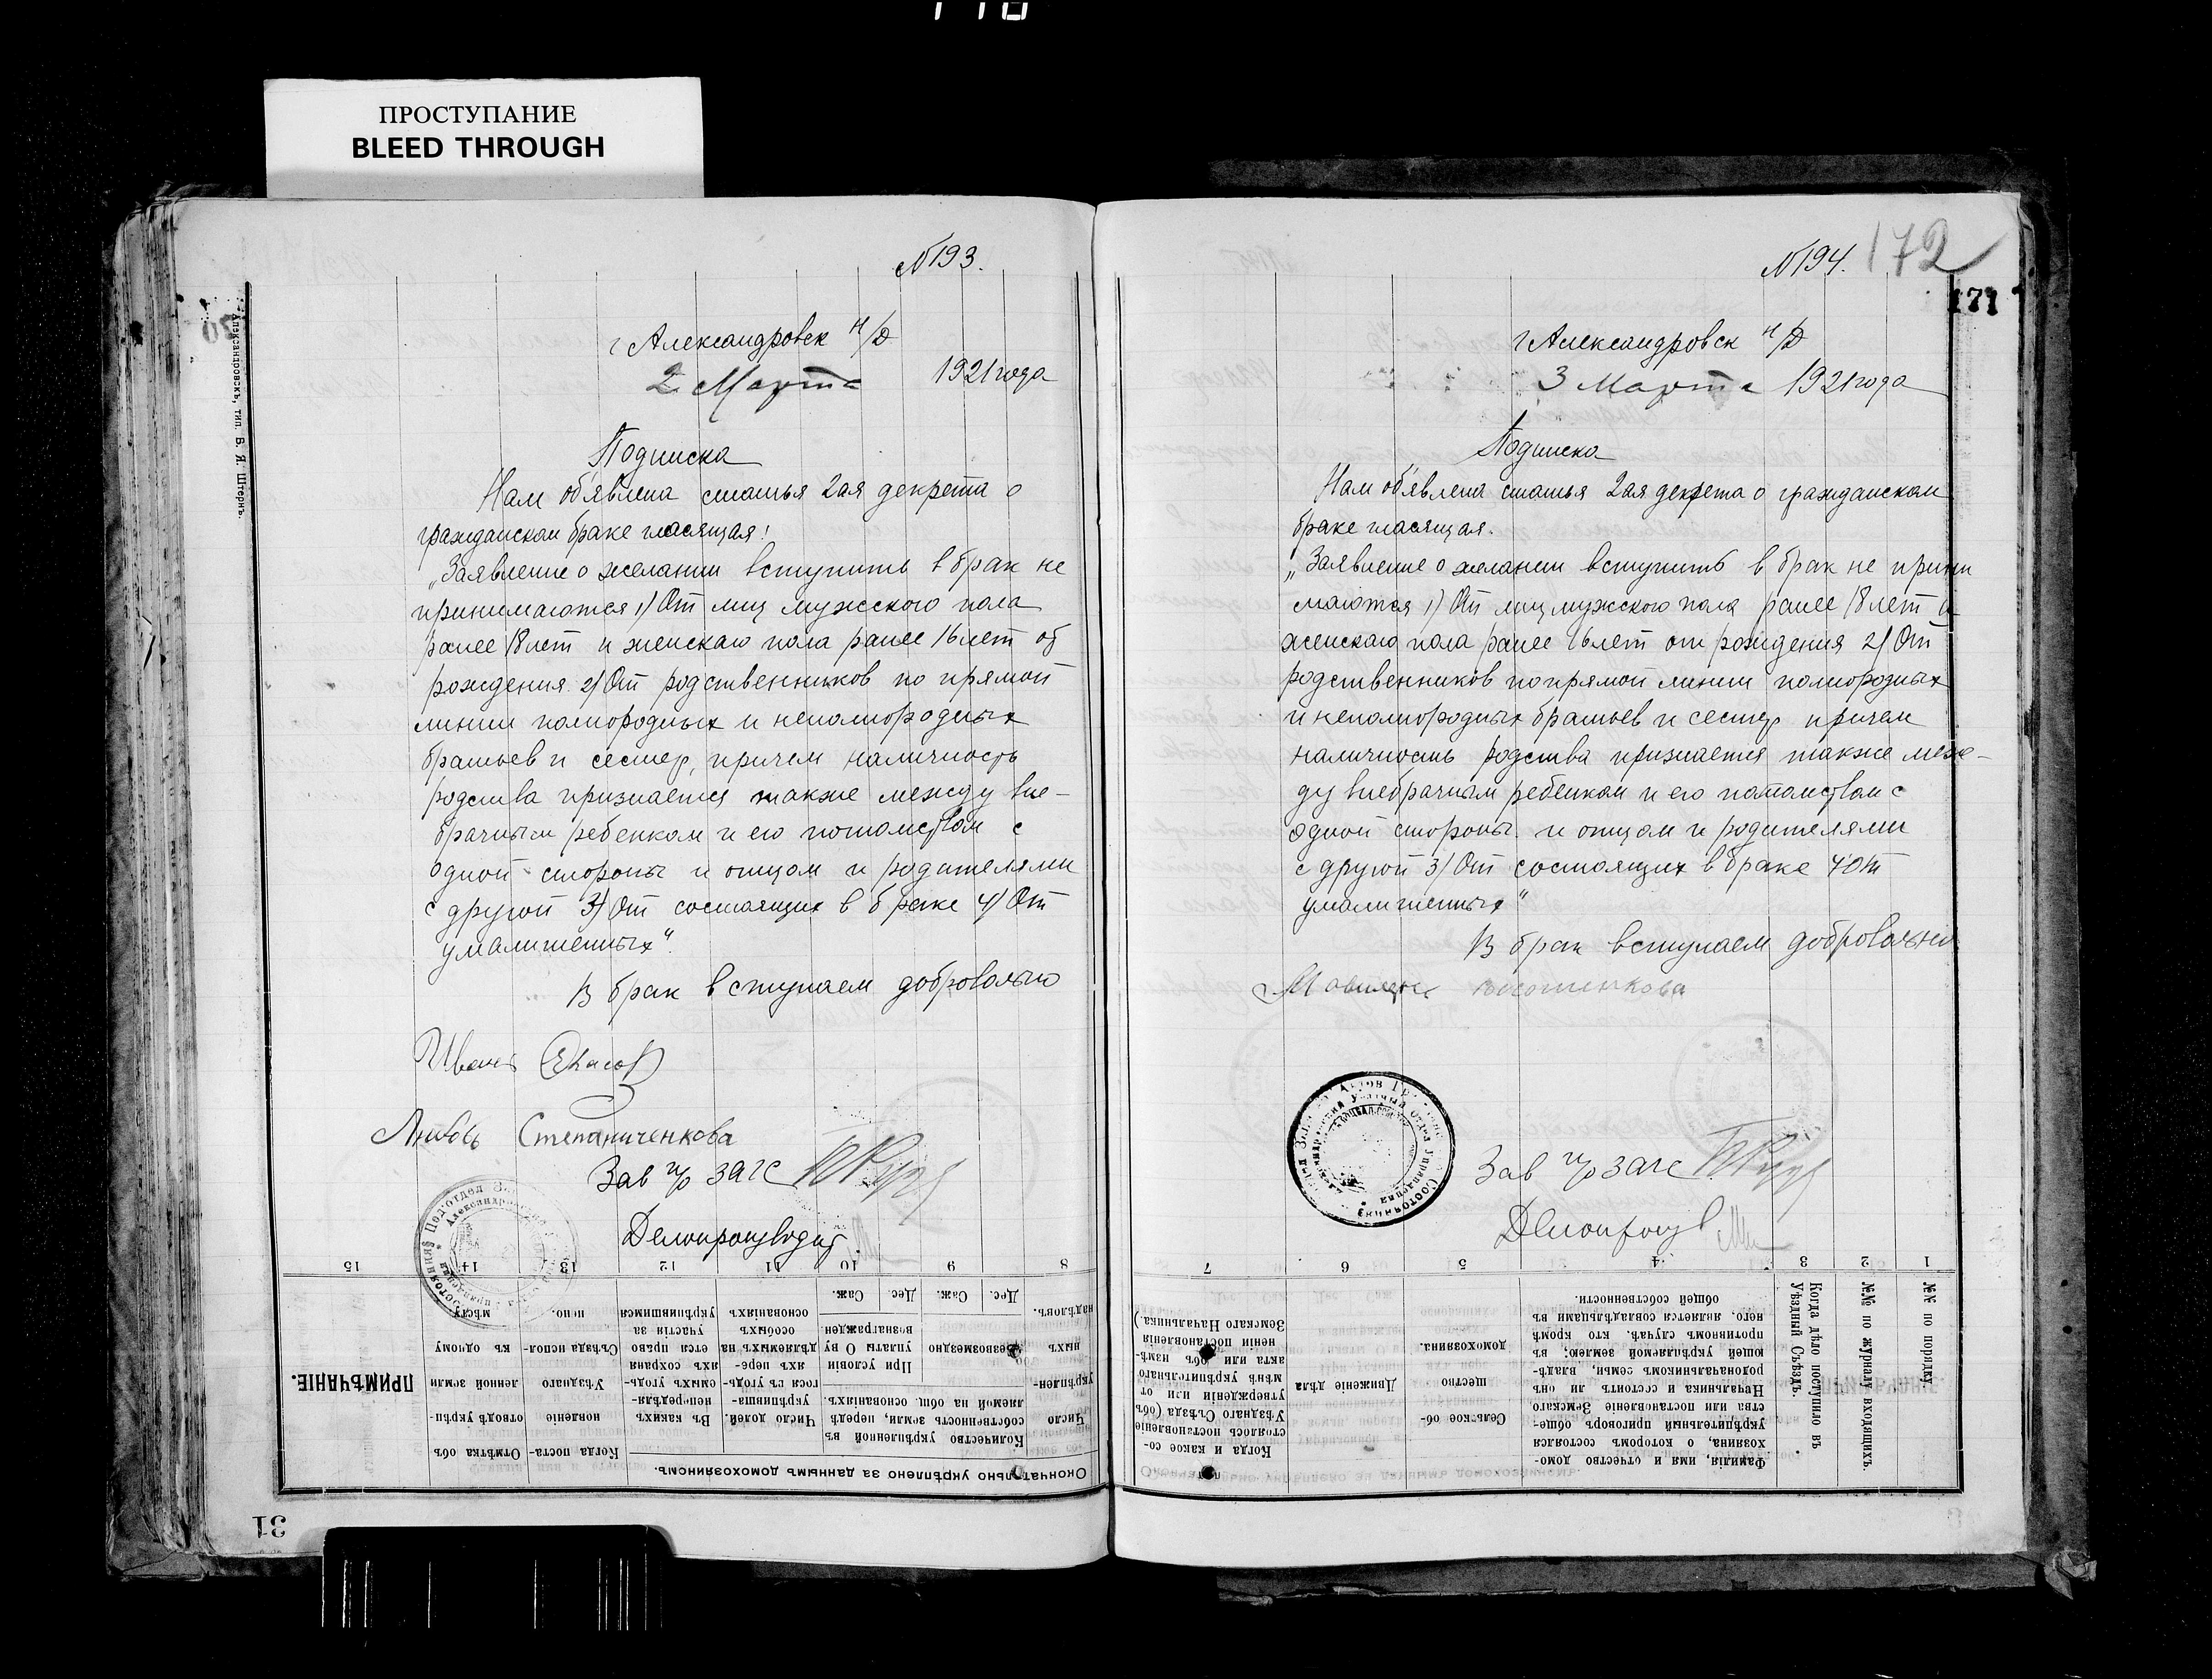 ПРОСТУПАНИЕ
BLEED THROUGH
№193.
г Александровск н/Д
2 Марта 1921 года
Подписка
Нам об'явлена статья 2ая декрета о
гражданском браке гласящая!
„Заявление о желании вступить в брак не
принимаются 1) От лиц мужского пола
ранее 18 лет и женскаго пола ранее 16 лет от
рождения 2) От родственников по прямой
линии полнородных и неполнородных
братьев и сестер, причем наличность
родства признается также между вне-
брачным ребенком и его потомством с
одной стороны и отцом и родителями
с другой 3) От состоящих в браке 4) От
умалишенных“.
В брак вступаем добровольно
Иванъ
Любовь Степаниченкова
Зав п/о загс
Делопроизводит.
15 14 13 12 11 10 9 8
Дес. Саж. Дес. Саж.
Окончательно укрѣплено за даннымъ домохозяиномъ.
Число укрѣпленныхъ надѣловъ.
Количество укрѣпленной въ собственность земли, передѣляемой на общ. основаніяхъ.
Безвозмездно
При условіи уплаты О ву вознагражден.
Число долей.
Когда постановленіе Уѣзднаго Съѣзда исполнено.
Отмѣтка объ отводѣ укрѣпленной земли къ одному мѣсту.
ПРИМѢЧАНІЕ.
Александровскъ, тип. Б. Я. Штернъ.
31
№194.
172
171
г Александровск н/Д
3 Марта 1921 года
Подписка
Нам об'явлена статья 2ая декрета о гражданском
браке гласящая.
„Заявление о желании вступить в брак не прини
маются 1) От лиц мужского пола ранее 18 лет и
женскаго пола ранее 16 лет от рождения 2) От
родственников по прямой линии полнородных
и неполнородных братьев и сестер причем
наличность родства признается также меж-
ду внебрачным ребенком и его потомством с
одной стороны и отцом и родителями
с другой 3) От состоящих в браке 4) От
умалишенных“
В брак вступаем добровольно
Зав п/о загс
Делопроизв
7 6 5 4 3 2 1
№№ по порядку.
№№ по журналу входящихъ.
Когда дѣло поступило въ Уѣздный Съѣздъ.
Фамилія, имя и отчество домохозяина, о которомъ состоялся укрѣпительный приговоръ общества или постановленіе Земскаго Начальника и состоитъ ли онъ родоначальникомъ семьи, владѣющей укрѣпляемой землею; въ противномъ случаѣ, кто кромѣ него, является совладѣльцами въ общей собственности.
Сельское общество домохозяина.
Движеніе дѣла
Когда и какое состоялось постановленіе Уѣзднаго Съѣзда (объ утвержденіи или отмѣнѣ укрѣпительнаго акта или объ измѣненіи постановленія Земскаго Начальника.)